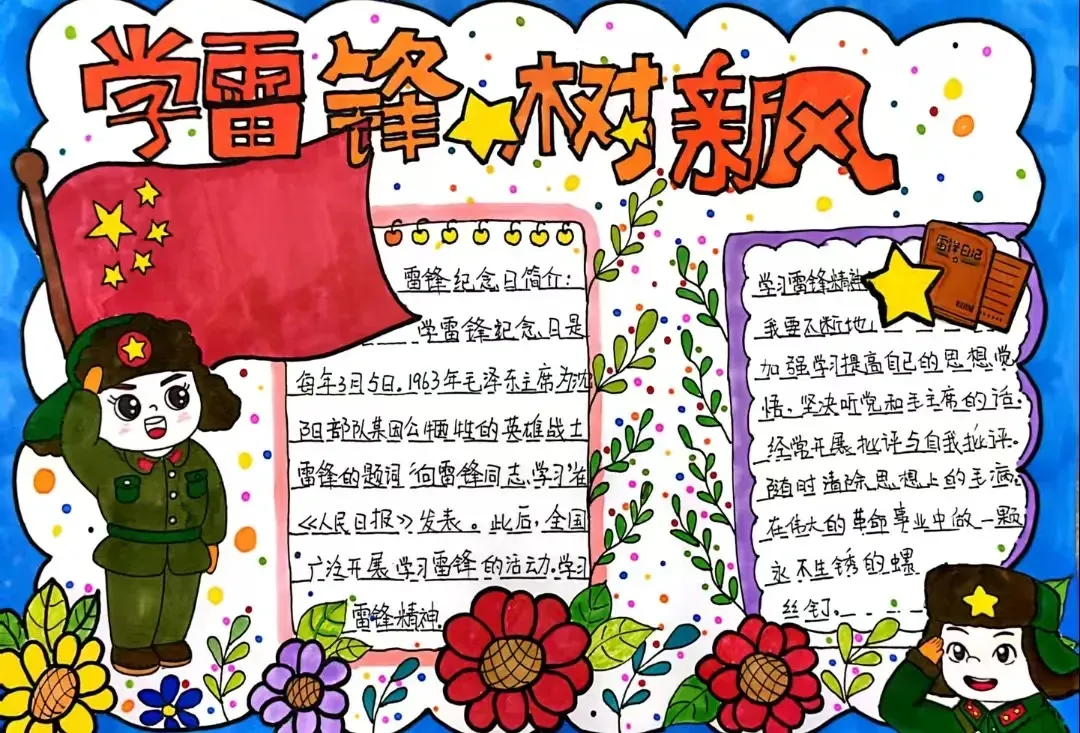 学雷锋树新风
雷锋纪念日简介:
学雷锋纪念日是
每年3月5日.1963年毛泽东主席为沈
阳部队某因公牺牲的英雄战士
雷锋的题词“向雷锋同志学习”在
《人民日报》发表。此后,全国
广泛开展学习雷锋的活动.学习
雷锋精神.
雷锋日记
学习雷锋精神
我要不断地
加强学习提高自己的思想觉
悟.坚决听党和毛主席的话.
经常开展批评与自我批评。
随时清除思想上的毛病。
在伟大的革命事业中做一颗
永不生锈的螺
丝钉.